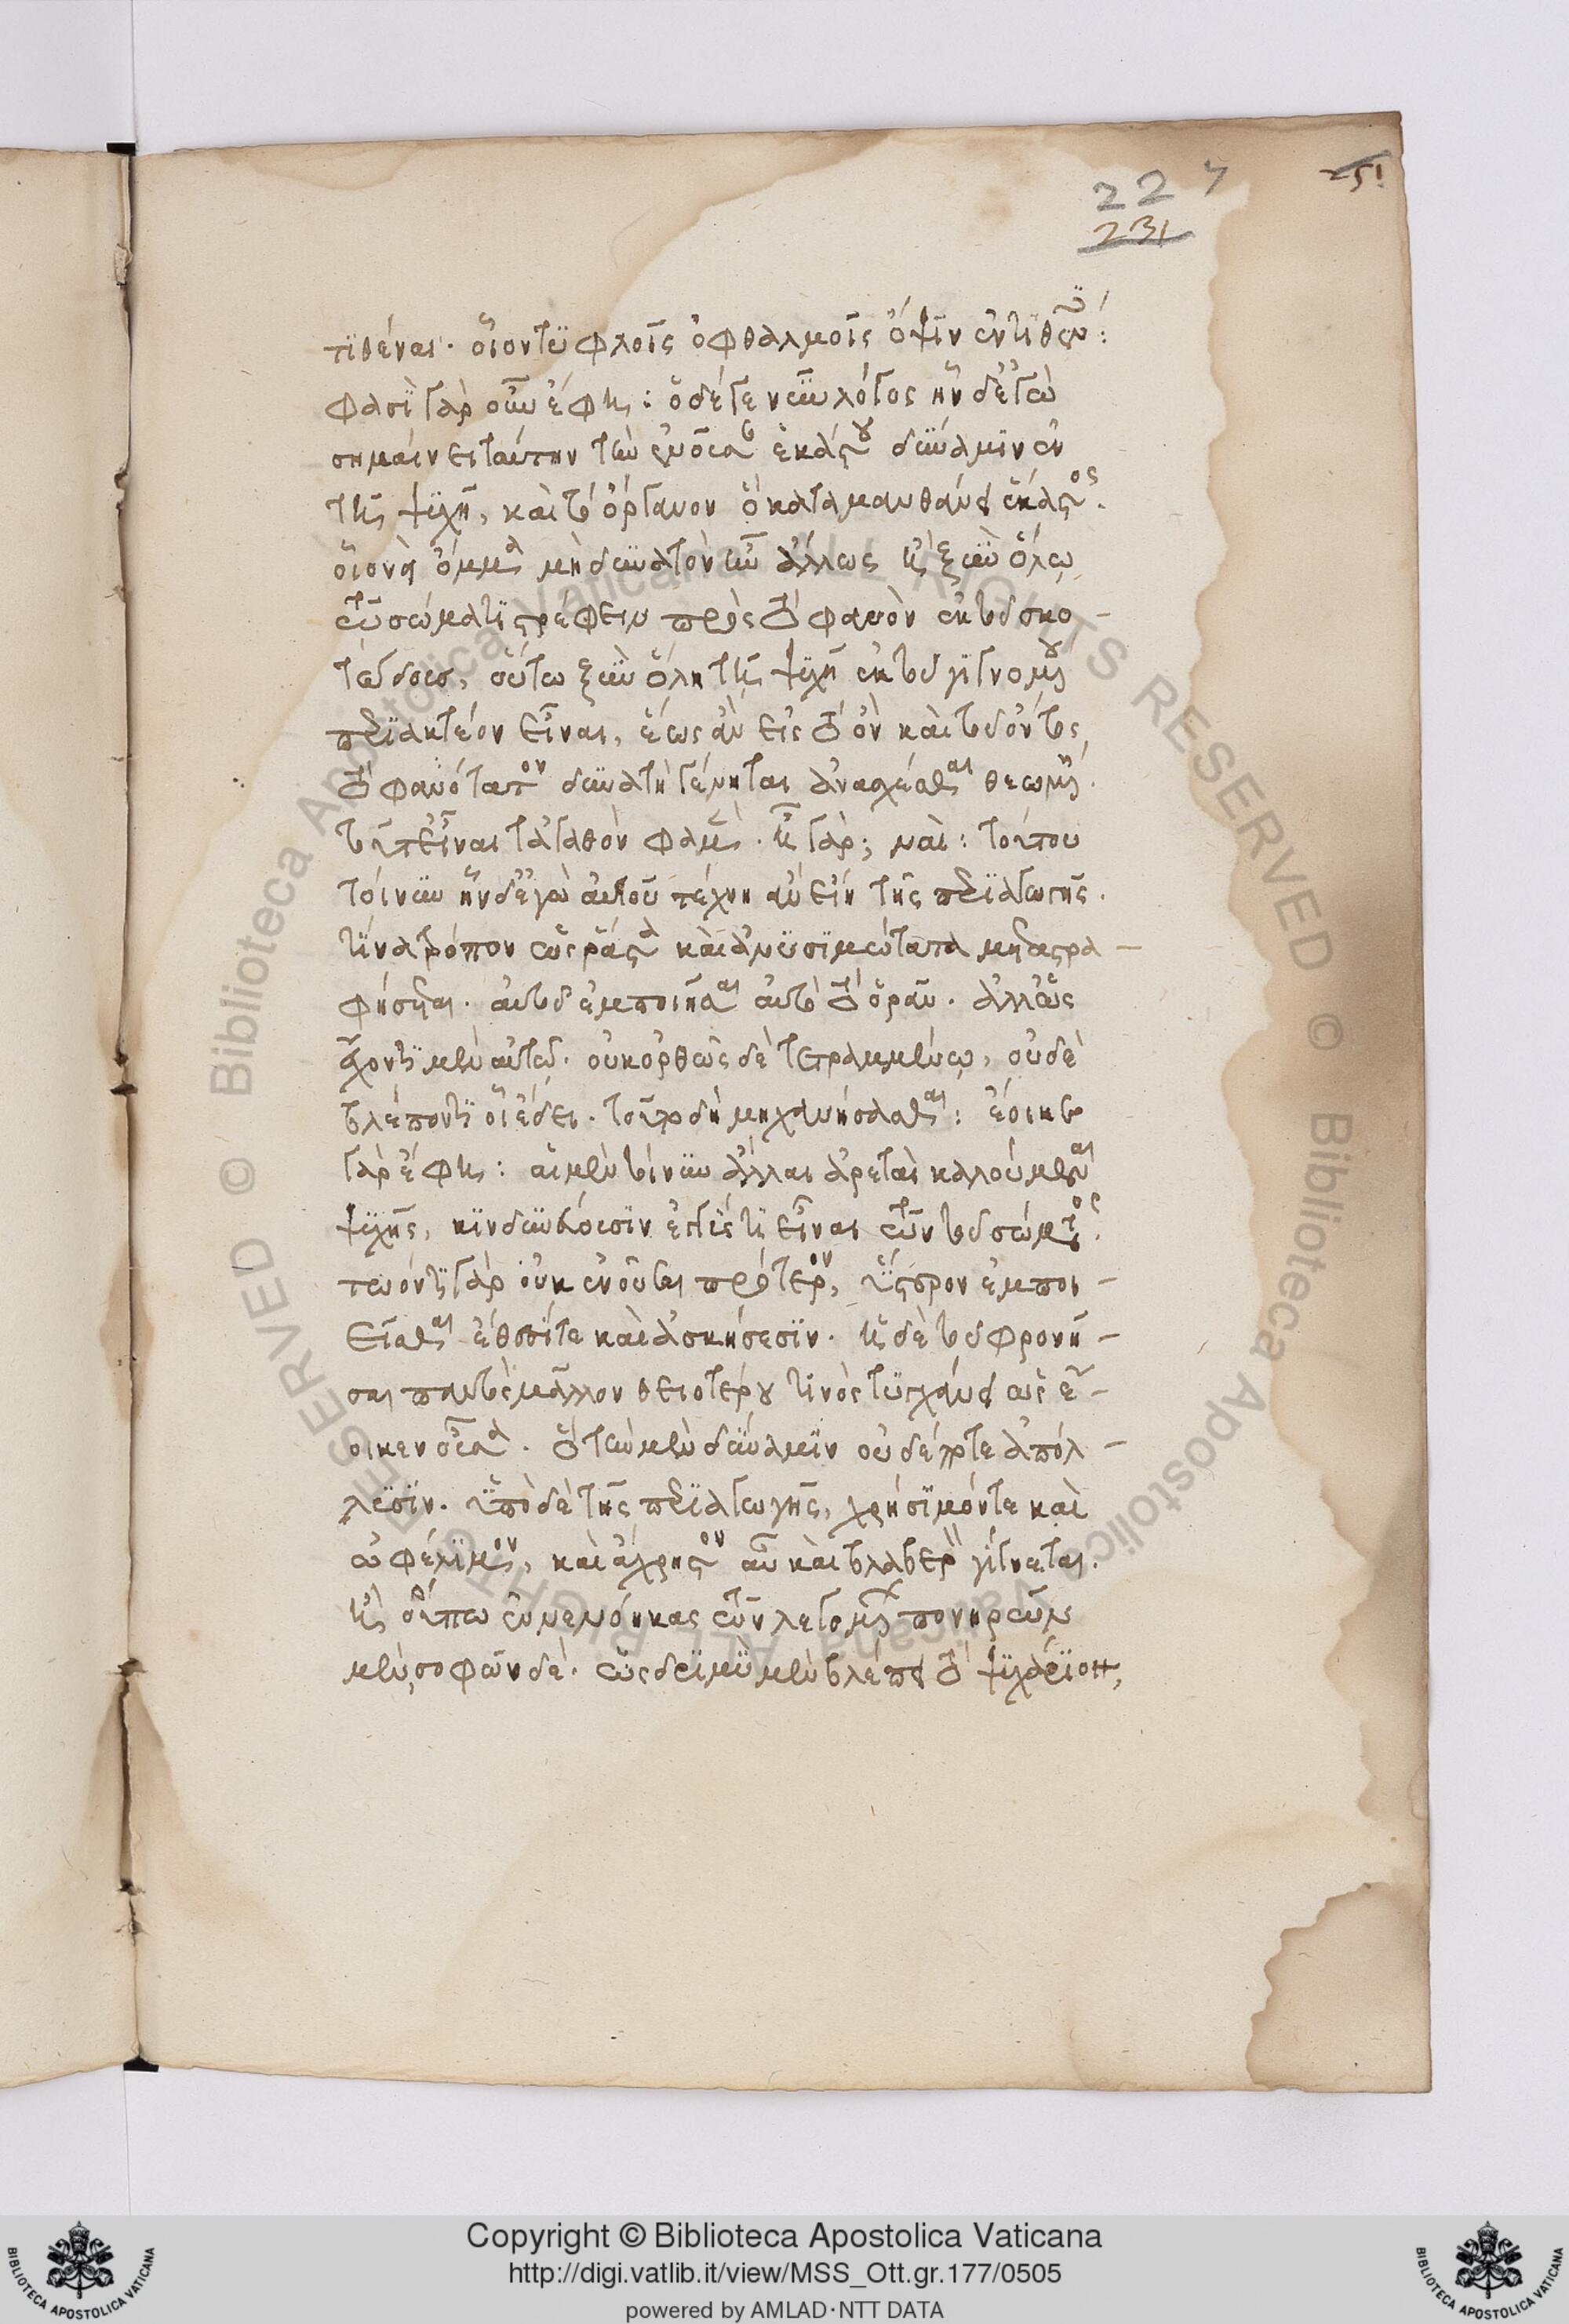 227
231
251
τιθέναι. οἷον τυφλοῖς ὀφθαλμοῖς ὄψιν ἐντιθέντες:
φασὶ γὰρ οὖν ἔφη: ὁ δέ γε νῦν λόγος ἦν δ' ἐγὼ
σημαίνει ταύτην τὴν ἐνοῦσαν ἑκάστου δύναμιν ἐν
τῇ ψυχῇ, καὶ τὸ ὄργανον ᾧ καταμανθάνει ἕκαστος.
οἷον εἰ ὄμμα μὴ δυνατὸν ἦν ἄλλως ἢ ξὺν ὅλῳ
τῷ σώματι στρέφειν πρὸς τὸ φανὸν ἐκ τοῦ σκο-
τώδους, οὕτω ξὺν ὅλῃ τῇ ψυχῇ ἐκ τοῦ γιγνομένου
περιακτέον εἶναι, ἕως ἂν εἰς τὸ ὂν καὶ τοῦ ὄντος
τὸ φανότατον δυνατὴ γένηται ἀνασχέσθαι θεωμένη.
τοῦτ' εἶναι τἀγαθὸν φαμέν. ἦ γάρ; ναί: τούτου
τοίνυν ἦν δ' ἐγὼ αὐτοῦ τέχνη ἂν εἴη τῆς περιαγωγῆς.
τίνα τρόπον ὡς ῥᾷστα καὶ ἀνυσιμώτατα μεταστρα-
φήσεται. οὐ τοῦ ἐμποιῆσαι αὐτῷ τὸ ὁρᾶν. ἀλλ' ὡς
ἔχοντι μὲν αὐτό. οὐκ ὀρθῶς δὲ τετραμμένῳ, οὐδὲ
βλέποντι οἷ ἔδει. τοῦτο δὴ μηχανήσασθαι: ἔοικε
γὰρ ἔφη: αἱ μὲν τοίνυν ἄλλαι ἀρεταὶ καλούμεναι
ψυχῆς, κινδυνεύουσιν ἐγγύς τι εἶναι τῶν τοῦ σώματος.
τῷ ὄντι γὰρ οὐκ ἐνοῦσαι πρότερον, ὕστερον ἐμποι-
εῖσθαι ἔθεσί τε καὶ ἀσκήσεσιν. ἡ δὲ τοῦ φρονῆ-
σαι παντὸς μᾶλλον θειοτέρου τινὸς τυγχάνει ὡς ἔ-
οικεν οὖσα. ὃ τὴν μὲν δύναμιν οὐδέποτε ἀπόλ-
λυσιν. ὑπὸ δὲ τῆς περιαγωγῆς, χρήσιμόν τε καὶ
ὠφέλιμον, καὶ ἄχρηστον αὖ καὶ βλαβερὸν γίγνεται.
ἢ οὔπω ἐννενόηκας τῶν λεγομένων πονηρῶν
μὲν, σοφῶν δέ. ὡς δριμὺ μὲν βλέπει τὸ ψυχάριον,
Copyright © Biblioteca Apostolica Vaticana
http://digi.vatlib.it/view/MSS_Ott.gr.177/0505
powered by AMLAD·NTT DATA